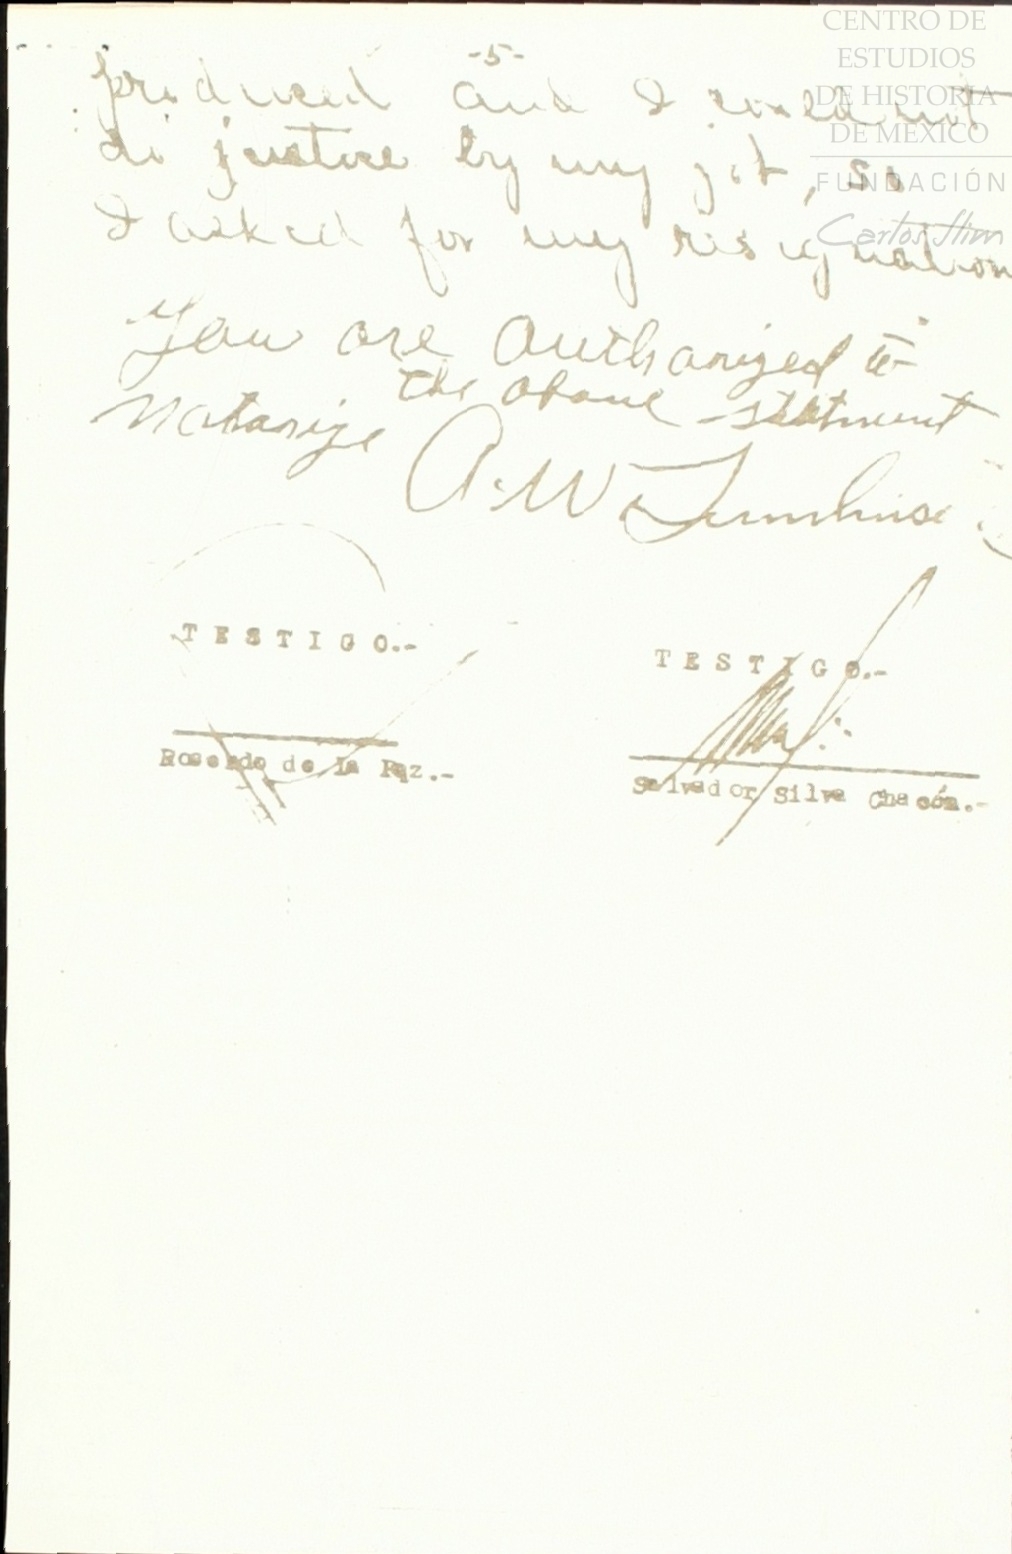 CENTRO DE
ESTUDIOS
DE HISTORIA
DE MÉXICO
FUNDACIÓN
Carlos Slim
-5-
produced and I could not
do justice by my job, so
I asked for my resignation
You are authorized to
notarize the above statment
A. W.
T E S T I G O.-
T E S T I G O.-
Rosendo de la Paz.-
Salvador Silva Chacón.-